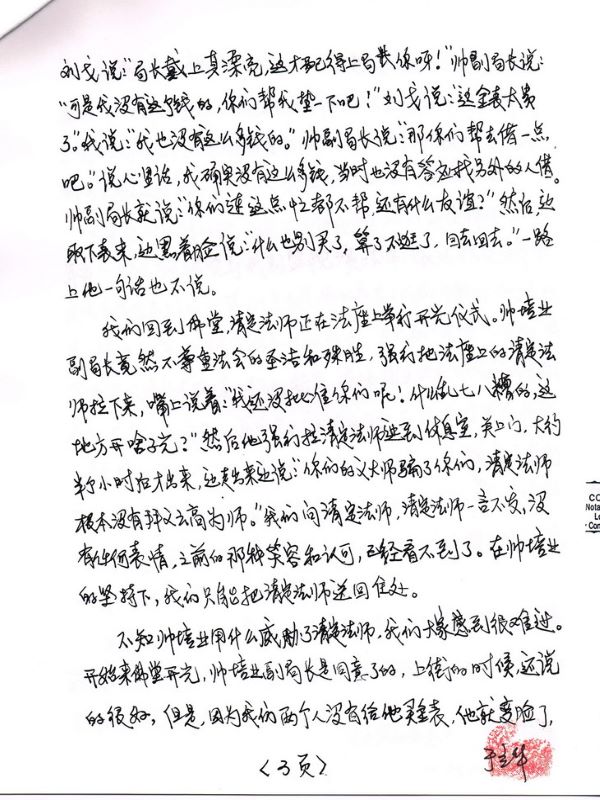 刘戈说:“局长戴上真漂亮,这才配得上局长你呀!”帅副局长说:
“可是我没有这个钱的,你们帮我垫一下吧!”刘戈说:“这金表太贵
了。”我说:“我也没有这么多钱的。”帅副局长说:“那你们帮去借一点
吧。”说心里话,我确实没有这么多钱,当时也没有答应找另外的人借。
帅副局长就说:“你们连这点忙都不帮,还有什么友谊?”然后,边
取下表来,边黑着脸说:“什么也别买了,算了不逛了,回去回去。”一路
上他一句话也不说。
我们回到佛堂,清定法师正在法座上举行开光仪式。帅培业
副局长竟然不尊重法会的圣洁和殊胜,强行把法座上的清定法
师拉下来,嘴上说着:“我还没批准你们呢!什么乱七八糟的,这
地方开啥子光?”然后他强行拉清定法师进到休息室,关上门,大约
半个小时后才出来,边走出来边说:“你们的义大师骗了你们,清定法师
根本没有拜义云高为师。”我们问清定法师,清定法师一言不发,没
有任何表情,之前的那种笑容和认可,已经看不到了。在帅培业
的坚持下,我们只能把清定法师送回住处。
不知帅培业用什么威胁了清定法师,我们大家感到很难过。
开始来佛堂开光,帅培业副局长是同意了的,上街的时候,还说
的很好,但是,因为我们两个人没有给他买金表,他就变脸了,
<3页>
CO
Nota
Lo
Con